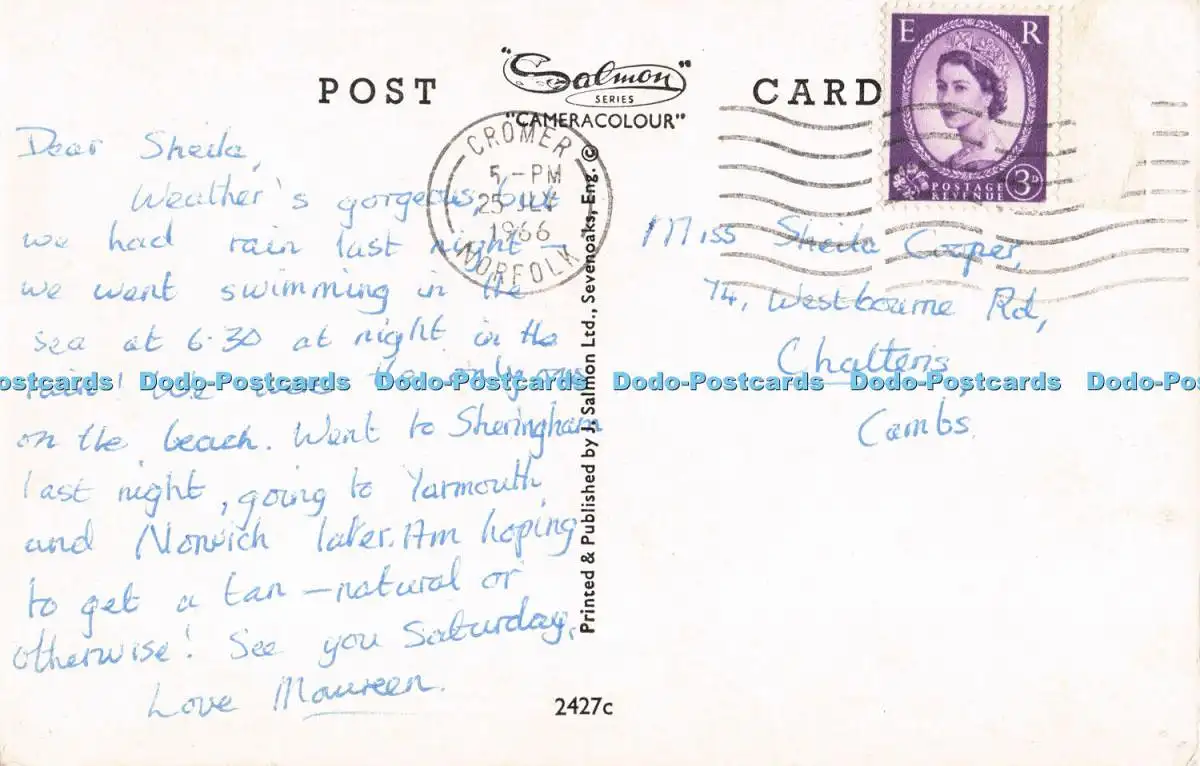 POST
"Salmon"
SERIES
"CAMERACOLOUR"
CARD
E R
POSTAGE
REVENUE
3D
CROMER
5 - PM
25 JLY
1966
NORFOLK
Dear Sheila,
Weather's gorgeous, but
we had rain last night –
we went swimming in the
sea at 6.30 at night in the
rain! We were the only ones
on the beach. Went to Sheringham
last night, going to Yarmouth
and Norwich later. Am hoping
to get a tan – natural or
otherwise! See you Saturday,
Love Maureen.
Printed & Published by J. Salmon Ltd., Sevenoaks, Eng. ©
Miss Sheila Cooper,
74, Westbourne Rd,
Chatteris,
Cambs.
ostcards Dodo-Postcards Dodo-Postcards Dodo-Postcards Dodo-Postcards Dodo-Post
2427c